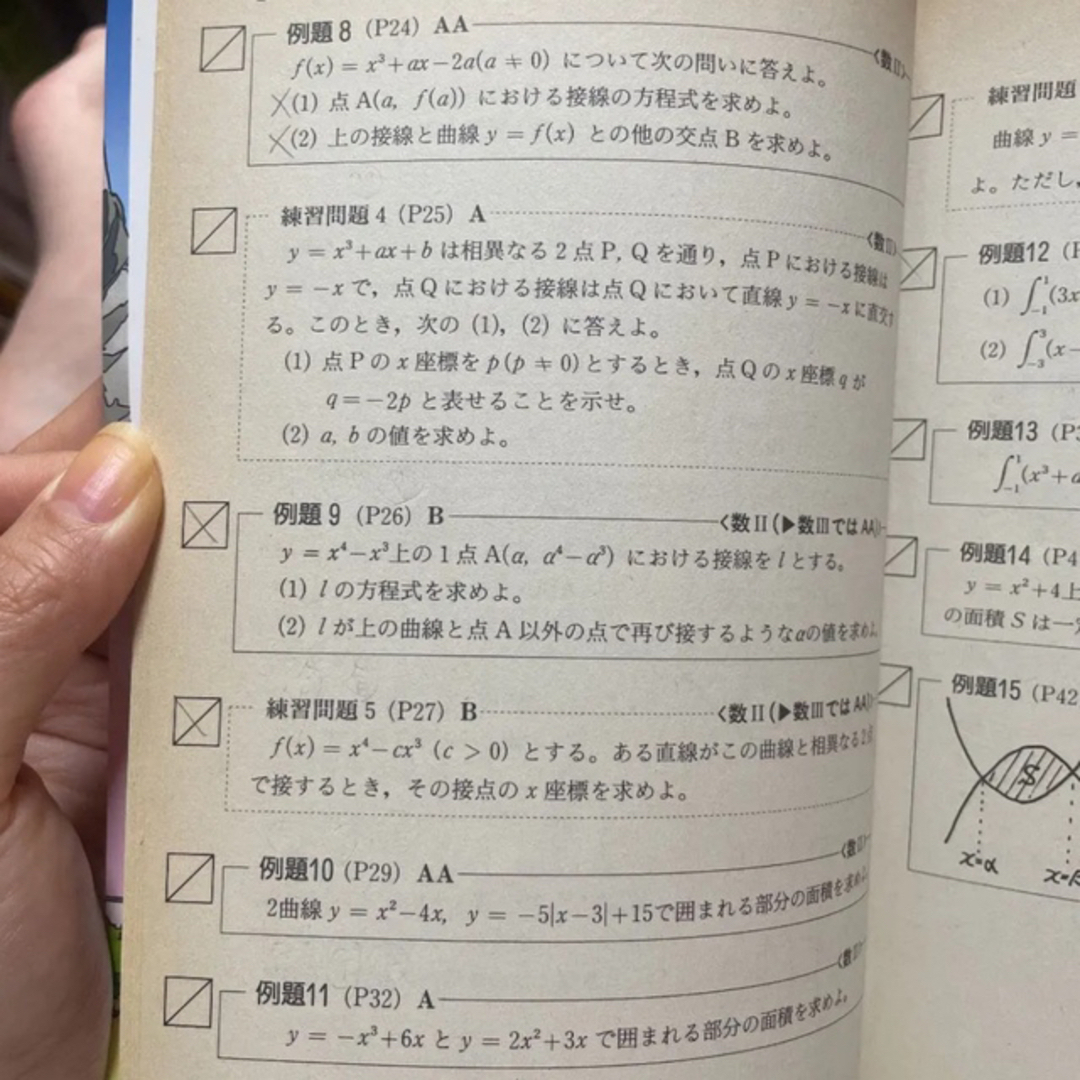 例題8 (P24) AA 〈数Ⅱ〉
f(x) = x³+ax−2a(a ≠ 0) について次の問いに答えよ。
(1) 点 A(a, f(a)) における接線の方程式を求めよ。
(2) 上の接線と曲線 y = f(x) との他の交点 B を求めよ。
練習問題4 (P25) A 〈数Ⅱ〉
y = x³+ax+b は相異なる2点 P, Q を通り，点 P における接線は
y = −x で，点 Q における接線は点 Q において直線 y = −x に直交す
る。このとき，次の (1), (2) に答えよ。
(1) 点 P の x 座標を p(p ≠ 0)とするとき，点 Q の x 座標 q が
q = −2p と表せることを示せ。
(2) a, b の値を求めよ。
例題9 (P26) B 〈数Ⅱ(▶数Ⅲでは AA)〉
y = x⁴−x³上の1点 A(α, α⁴−α³) における接線を l とする。
(1) l の方程式を求めよ。
(2) l が上の曲線と点 A 以外の点で再び接するようなαの値を求めよ。
練習問題5 (P27) B 〈数Ⅱ(▶数Ⅲでは AA)〉
f(x) = x⁴−cx³ (c > 0) とする。ある直線がこの曲線と相異なる2点
で接するとき，その接点の x 座標を求めよ。
例題10 (P29) AA 〈数Ⅱ〉
2曲線 y = x²−4x, y = −5|x−3|+15で囲まれる部分の面積を求めよ。
例題11 (P32) A 〈数Ⅱ〉
y = −x³+6x と y = 2x²+3x で囲まれる部分の面積を求めよ。
練習問題
曲線 y =
よ。ただし，
例題12
(1) ∫₋₁¹(3x
(2) ∫₋₃³(x−
例題13 (P3
∫₋₁¹(x³+a
例題14 (P4
y = x²+4上
の面積 S は一定
例題15 (P42
S
x=α
x=β